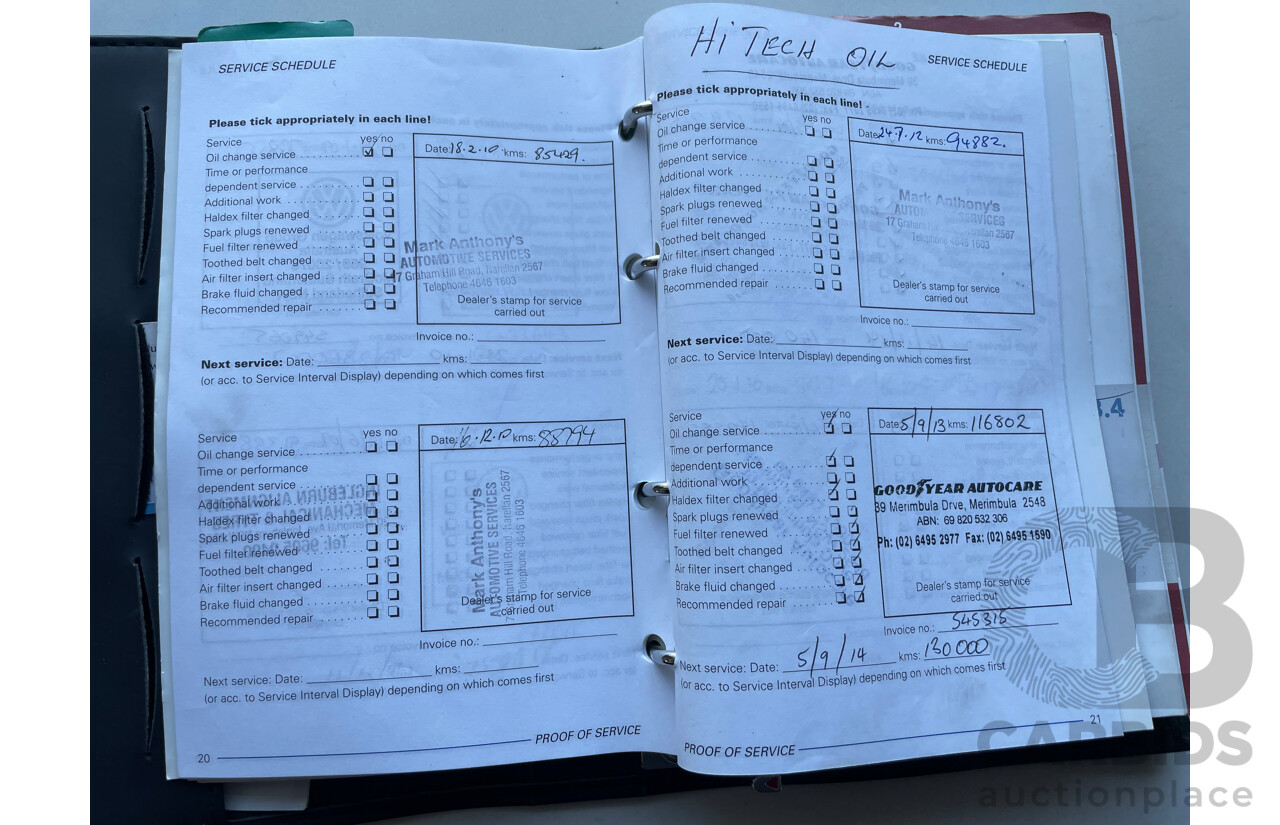 SERVICE SCHEDULE
Please tick appropriately in each line!
Service yes no
Oil change service
Time or performance
dependent service
Additional work
Haldex filter changed
Spark plugs renewed
Fuel filter renewed
Toothed belt changed
Air filter insert changed
Brake fluid changed
Recommended repair
Date: 18.2.10 kms: 85429.
Mark Anthony's
AUTOMOTIVE SERVICES
17 Graham Hill Road, Narellan 2567
Telephone 4646 1603
Dealer's stamp for service
carried out
Invoice no.:
Next service: Date: kms:
(or acc. to Service Interval Display) depending on which comes first
Service yes no
Oil change service
Time or performance
dependent service
Additional work
Haldex filter changed
Spark plugs renewed
Fuel filter renewed
Toothed belt changed
Air filter insert changed
Brake fluid changed
Recommended repair
Date: 16.12.10 kms: 88794
Mark Anthony's
AUTOMOTIVE SERVICES
17 Graham Hill Road, Narellan 2567
Telephone 4646 1603
Dealer's stamp for service
carried out
Invoice no.:
Next service: Date: kms:
(or acc. to Service Interval Display) depending on which comes first
20 PROOF OF SERVICE
HI TECH OIL
SERVICE SCHEDULE
Please tick appropriately in each line!
Service yes no
Oil change service
Time or performance
dependent service
Additional work
Haldex filter changed
Spark plugs renewed
Fuel filter renewed
Toothed belt changed
Air filter insert changed
Brake fluid changed
Recommended repair
Date: 24.7.12 kms: 94882.
Mark Anthony's
AUTOMOTIVE SERVICES
17 Graham Hill Road, Narellan 2567
Telephone 4646 1603
Dealer's stamp for service
carried out
Invoice no.:
Next service: Date: kms:
(or acc. to Service Interval Display) depending on which comes first
Service yes no
Oil change service
Time or performance
dependent service
Additional work
Haldex filter changed
Spark plugs renewed
Fuel filter renewed
Toothed belt changed
Air filter insert changed
Brake fluid changed
Recommended repair
Date: 5/9/13 kms: 116802
GOODYEAR AUTOCARE
39 Merimbula Drve, Merimbula 2548
ABN: 69 820 532 306
Ph: (02) 6495 2977 Fax: (02) 6495 1590
Dealer's stamp for service
carried out
Invoice no.: 545315
Next service: Date: 5/9/14 kms: 130000
(or acc. to Service Interval Display) depending on which comes first
PROOF OF SERVICE 21
3.4
CARBIDS
auctionplace